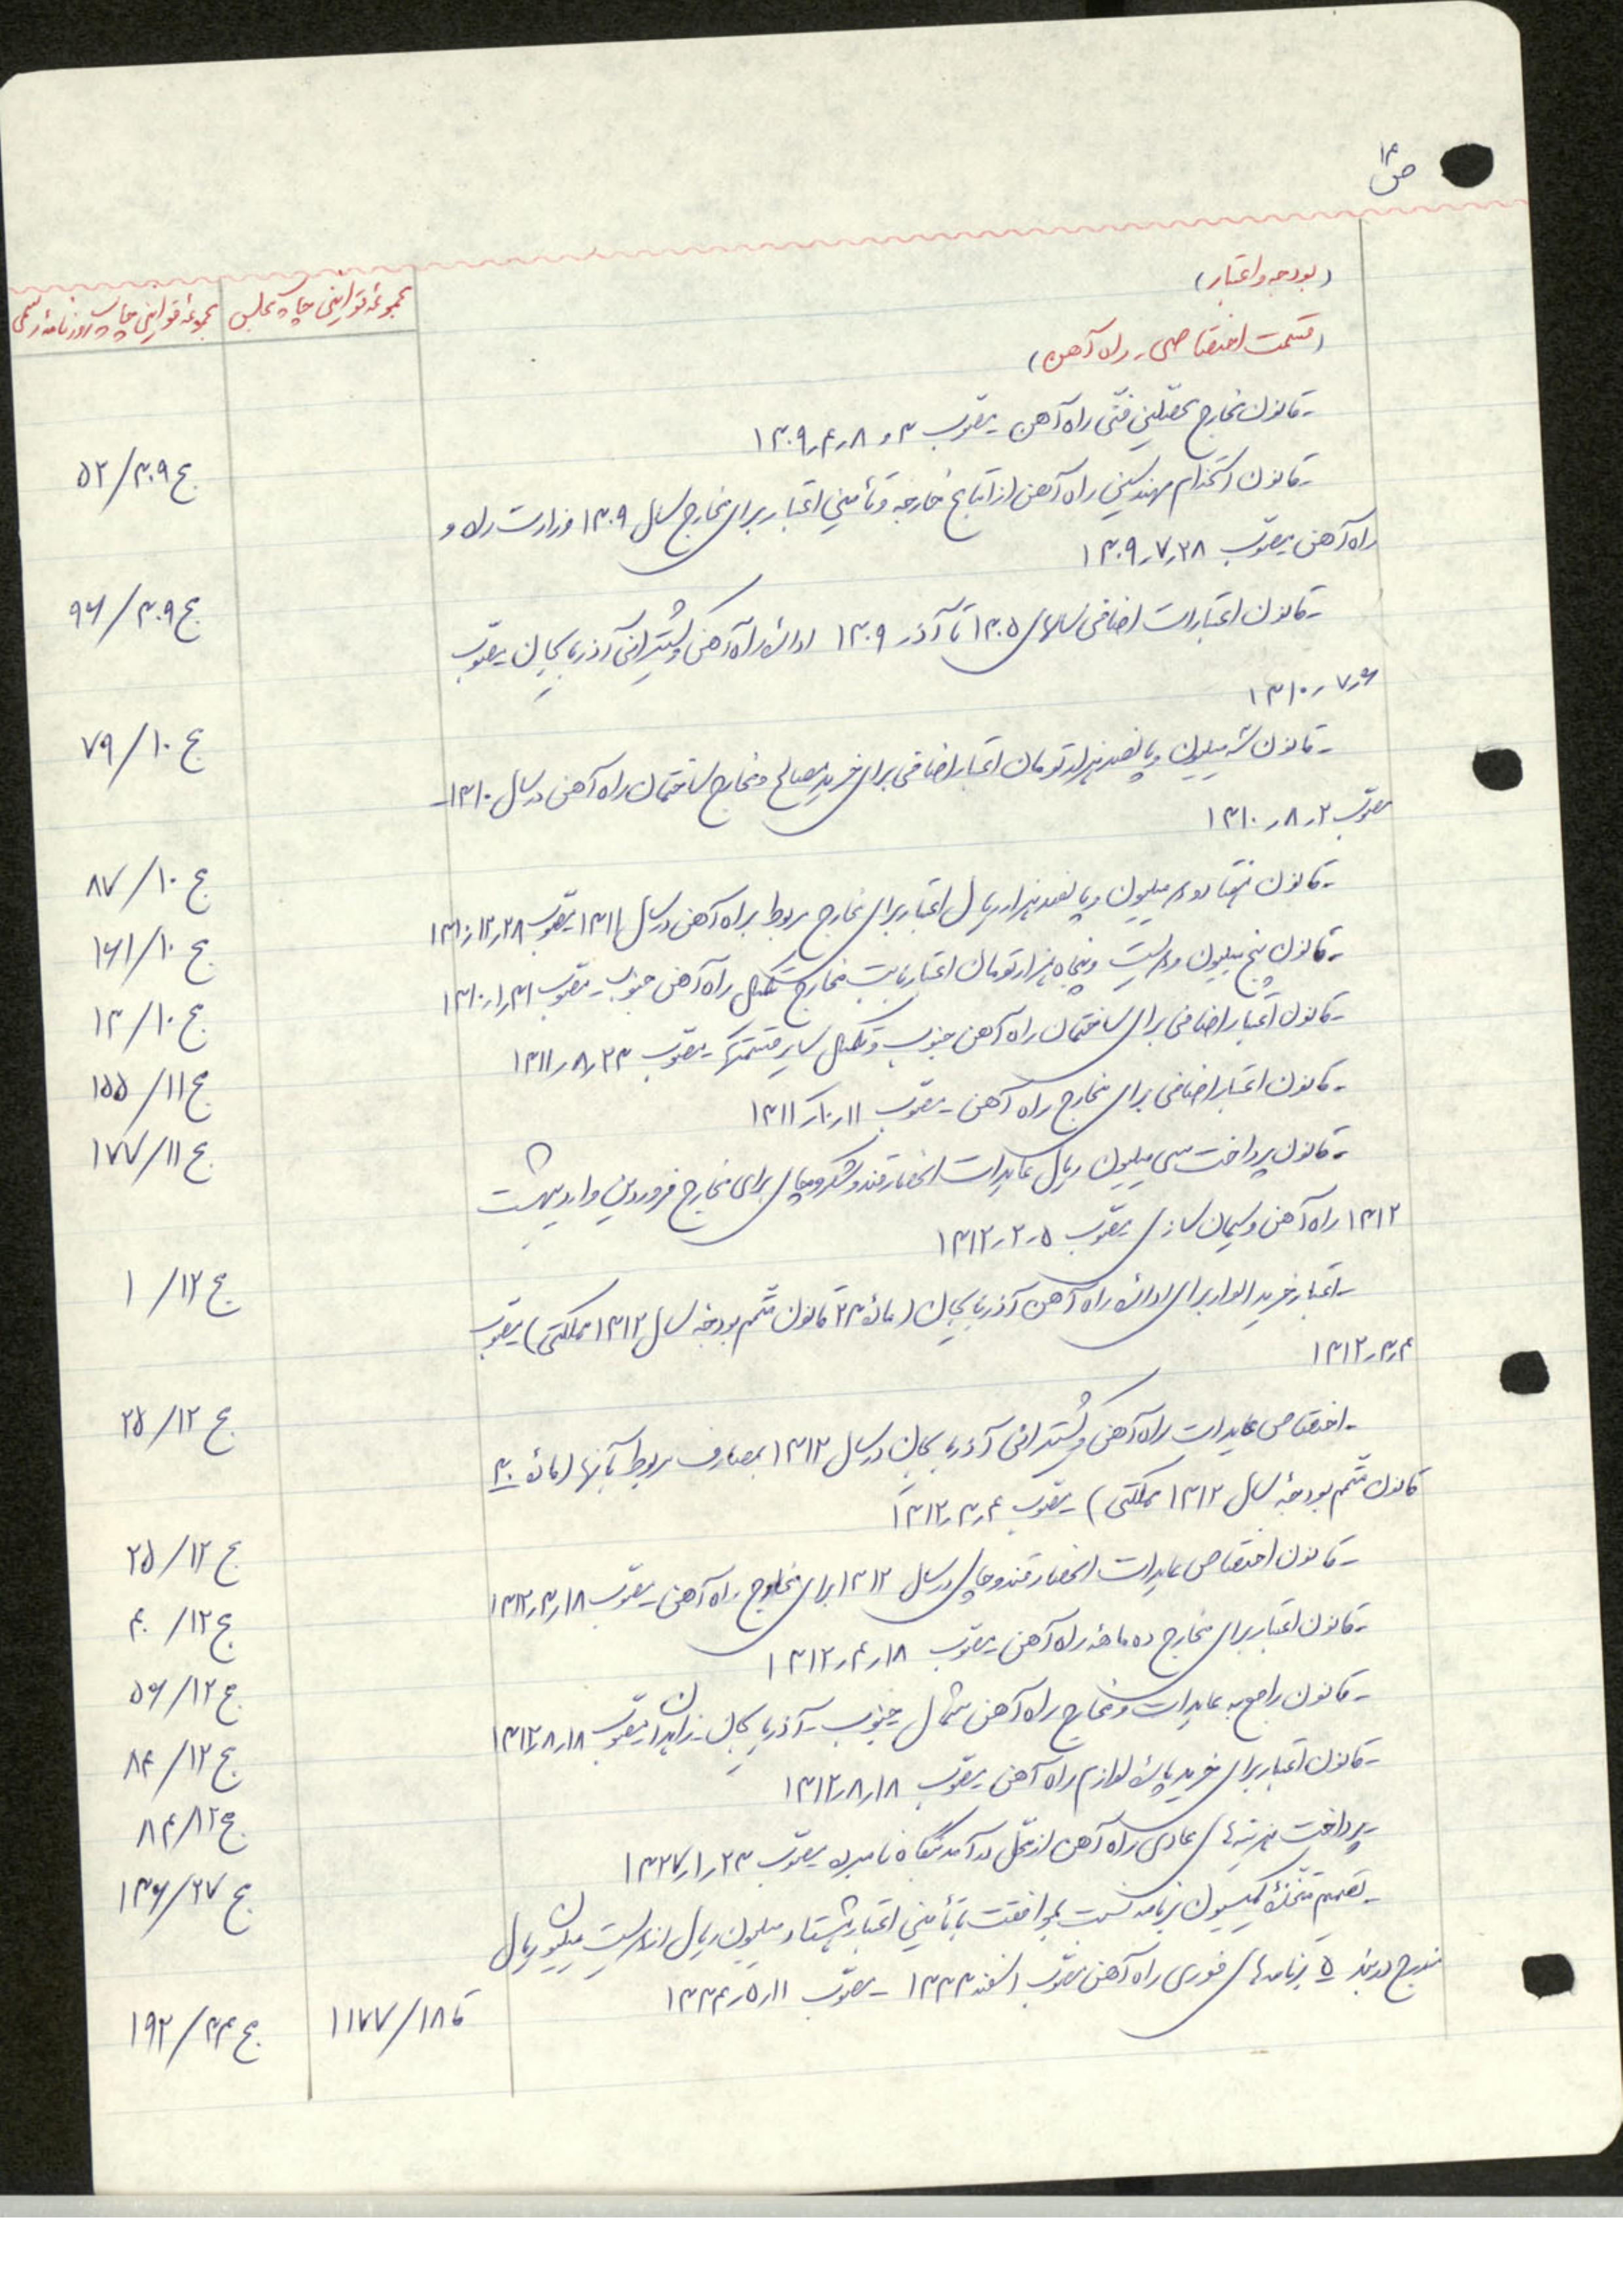 ص ۱۴
(بودجه و اعتبار)
(قسمت اختصاصی ـ راه آهن)
مجموعهٔ قوانین چاپ مجلس
مجموعهٔ قوانین چاپ روزنامهٔ رسمی
ـ قانون مخارج محصلین فنّی راه آهن ـ مصوب ۳ و ۸ ر ۴ ر ۱۳۰۹
ج ۳۰۹ / ۵۲
ـ قانون استخدام مهندسین راه آهن از اتباع خارجه و تأمین اعتبار برای مخارج سال ۱۳۰۹ وزارت راه و
راه آهن مصوب ۲۸ ر ۷ ر ۱۳۰۹
ج ۳۰۹ / ۹۶
ـ قانون اعتبارات اضافی سالهای ۱۳۰۵ تا آذر ۱۳۰۹ اداره راه آهن و کشتیرانی آذربایجان مصوب
۶ ر ۷ ر ۱۳۱۰
ج ۱۰ / ۷۹
ـ قانون شه میلیون و پانصد هزار تومان اعتبار اضافی برای خرید مصالح و مخارج ساختمان راه آهن در سال ۱۳۱۰ ـ
مصوب ۲ ر ۸ ر ۱۳۱۰
ج ۱۰ / ۸۷
ـ قانون هفتاد و دو میلیون و پانصد هزار ریال اعتبار برای مخارج مربوط براه آهن در سال ۱۳۱۱ مصوب ۲۸ ر ۱۲ ر ۱۳۱۰
ج ۱۰ / ۱۶۱
ـ قانون پنج میلیون و دویست و پنجاه هزار تومان اعتبار بابت مخارج تکمیل راه آهن جنوب ـ مصوب ۳۱ ر ۱ ر ۱۳۱۰
ج ۱۰ / ۱۳
ـ قانون اعتبار اضافی برای ساختمان راه آهن جنوب و تکمیل سایر قسمتها ـ مصوب ۲۳ ر ۸ ر ۱۳۱۱
ج ۱۱ / ۱۵۵
ـ قانون اعتبار اضافی برای مخارج راه آهن ـ مصوب ۱۱ ر ۱۰ ر ۱۳۱۱
ج ۱۱ / ۱۷۷
ـ قانون پرداخت سی میلیون ریال عایدات انحصار قند و شکر و چای برای مخارج فروردین و اردیبهشت
۱۳۱۲ راه آهن و سیمان سازی مصوب ۵ ر ۲ ر ۱۳۱۲
ج ۱۲ / ۱
ـ اعتبار خرید الوار برای اداره راه آهن آذربایجان (مادهٔ ۲۳ قانون متمم بودجهٔ سال ۱۳۱۲ مملکتی) مصوب
۴ ر ۳ ر ۱۳۱۲
ج ۱۲ / ۲۵
ـ اختصاص عایدات راه آهن و کشتیرانی آذربایجان در سال ۱۳۱۲ بمصارف مربوط بآنها (مادهٔ ۳۰
قانون متمم بودجهٔ سال ۱۳۱۲ مملکتی) مصوب ۴ ر ۳ ر ۱۳۱۲
ج ۱۲ / ۲۵
ـ قانون اختصاص عایدات انحصار قند و چای در سال ۱۳۱۲ برای مخارج راه آهن ـ مصوب ۱۸ ر ۳ ر ۱۳۱۲
ج ۱۲ / ۴۰
ـ قانون اعتبار برای مخارج ده ماههٔ راه آهن ـ مصوب ۱۸ ر ۴ ر ۱۳۱۲
ج ۱۲ / ۵۶
ـ قانون راجع به عایدات و مخارج راه آهن شمال ـ جنوب ـ آذربایجان ـ زاهدان مصوب ۱۸ ر ۸ ر ۱۳۱۲
ج ۱۲ / ۸۴
ـ قانون اعتبار برای خرید پاره لوازم راه آهن مصوب ۱۸ ر ۸ ر ۱۳۱۲
ج ۱۲ / ۸۴
ـ پرداخت هزینه های عادی راه آهن از محل درآمد بنگاه نامبرده مصوب ۲۳ ر ۱ ر ۱۳۲۷
ج ۲۷ / ۱۳۶
ـ تصمیم متخذهٔ کمیسیون برنامه نسبت بموافقت با تأمین اعتبار هشتاد میلیون ریال از دویست میلیون ریال
مندرج در بند ۵ برنامه های فوری راه آهن مصوب اسفند ۱۳۳۳ ـ مصوب ۱۱ ر ۵ ر ۱۳۳۴
قا ۱۸ / ۱۱۷۷
ج ۳۴ / ۱۹۲